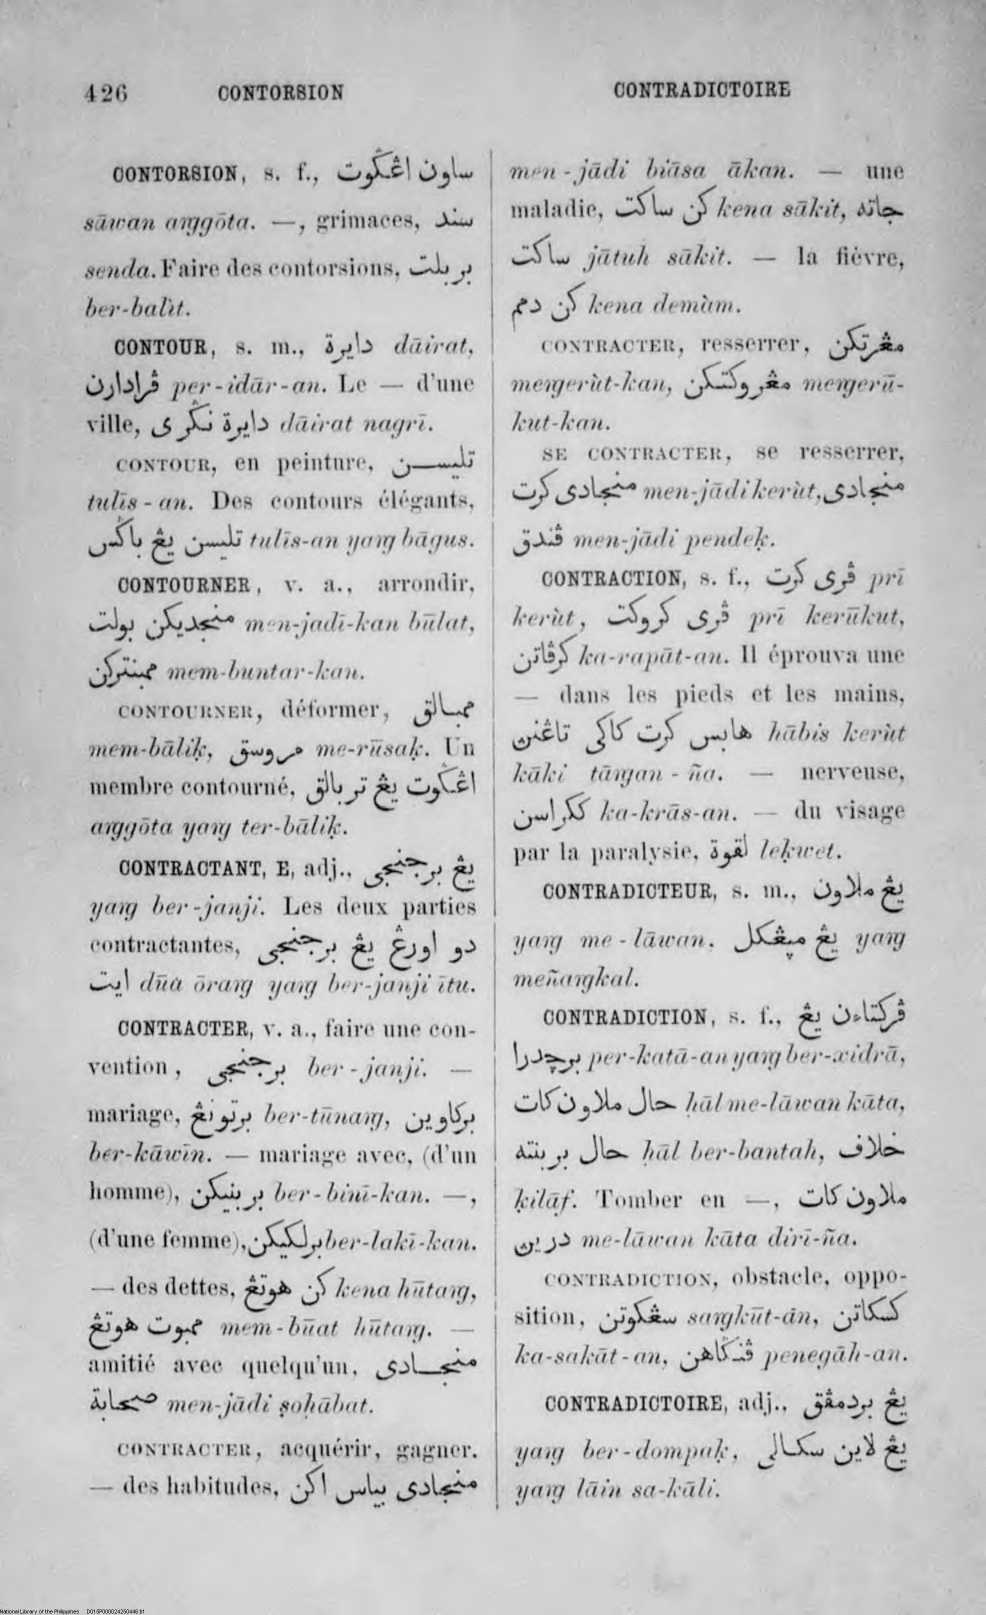 426 CONTORSION CONTRADICTOIRE
CONTORSION, s. f., ساون اڠݢوت
sāwan aŋggōta. —, grimaces, سند
senda. Faire des contorsions, بربلت
ber-balìt.
CONTOUR, s. m., دايرة dāirat,
ڤرادارن per-idār-an. Le — d'une
ville, دايرة نݢري dāirat nagrī.
CONTOUR, en peinture, تليسن
tulīs-an. Des contours élégants,
تليسن يڠ باݢس tulīs-an yaŋ bāgus.
CONTOURNER, v. a., arrondir,
منجديكن بولت men-jadī-kan būlat,
ممبنترکن mem-buntar-kan.
CONTOURNER, déformer, ممبالق
mem-bāliḳ, مروسق me-rūsaḳ. Un
membre contourné, اڠݢوت يڠ تربالق
aŋggōta yaŋ ter-bāliḳ.
CONTRACTANT, E, adj., يڠ برجنجي
yaŋ ber-janji. Les deux parties
contractantes, دو اورڠ يڠ برجنجي
ايت dūa ōraŋ yaŋ ber-janji ītu.
CONTRACTER, v. a., faire une con-
vention, برجنجي ber-janji. —
mariage, برتونڠ ber-tūnaŋ, بركاوين
ber-kāwīn. — mariage avec, (d'un
homme), بربنيكن ber-binī-kan. —,
(d'une femme), برلكيكن ber-lakī-kan.
— des dettes, كن هوتڠ kena hūtaŋ,
ممبوت هوتڠ mem-būat hūtaŋ. —
amitié avec quelqu'un, منجادي
صحابة men-jādi ṣoḥābat.
CONTRACTER, acquérir, gagner.
— des habitudes, منجادي بياس اكن
men-jādi biāsa ākan. — une
maladie, كن ساكت kena sākit, جاته
ساكت jātuh sākit. — la fièvre,
كن دمم kena demàm.
CONTRACTER, resserrer, مڠرتكن
meŋgerùt-kan, مڠروكتكن meŋgerū-
kut-kan.
SE CONTRACTER, se resserrer,
منجادي كرت men-jādi kerùt, منجادي
ڤندق men-jādi pendeḳ.
CONTRACTION, s. f., ڤري كرت prī
kerùt, ڤري كروكت prī kerūkut,
كرڤاتن ka-rapāt-an. Il éprouva une
— dans les pieds et les mains,
هابس كرت كاكي تاڠنن hābis kerùt
kāki tāŋan-ña. — nerveuse,
ككراسن ka-krās-an. — du visage
par la paralysie, لقوة leḳwet.
CONTRADICTEUR, s. m., يڠ ملاون
yaŋ me-lāwan, يڠ ميڠكل yaŋ
meñaŋkal.
CONTRADICTION, s. f., ڤركتاءن يڠ
برچدرا per-katā-an yaŋ ber-xidrā,
حال ملاون كات ḥāl me-lāwan kāta,
حال بربنته ḥāl ber-bantah, خلاف
ḳilāf. Tomber en —, ملاون كات
درين me-lāwan kāta dirī-ña.
CONTRADICTION, obstacle, oppo-
sition, سڠكوتن saŋkūt-ān, كسكاتن
ka-sakāt-an, ڤنݢاهن penegāh-an.
CONTRADICTOIRE, adj., يڠ بردمڤق
yaŋ ber-dompaḳ, يڠ لاين سكالي
yaŋ lāin sa-kāli.
National Library of the Philippines